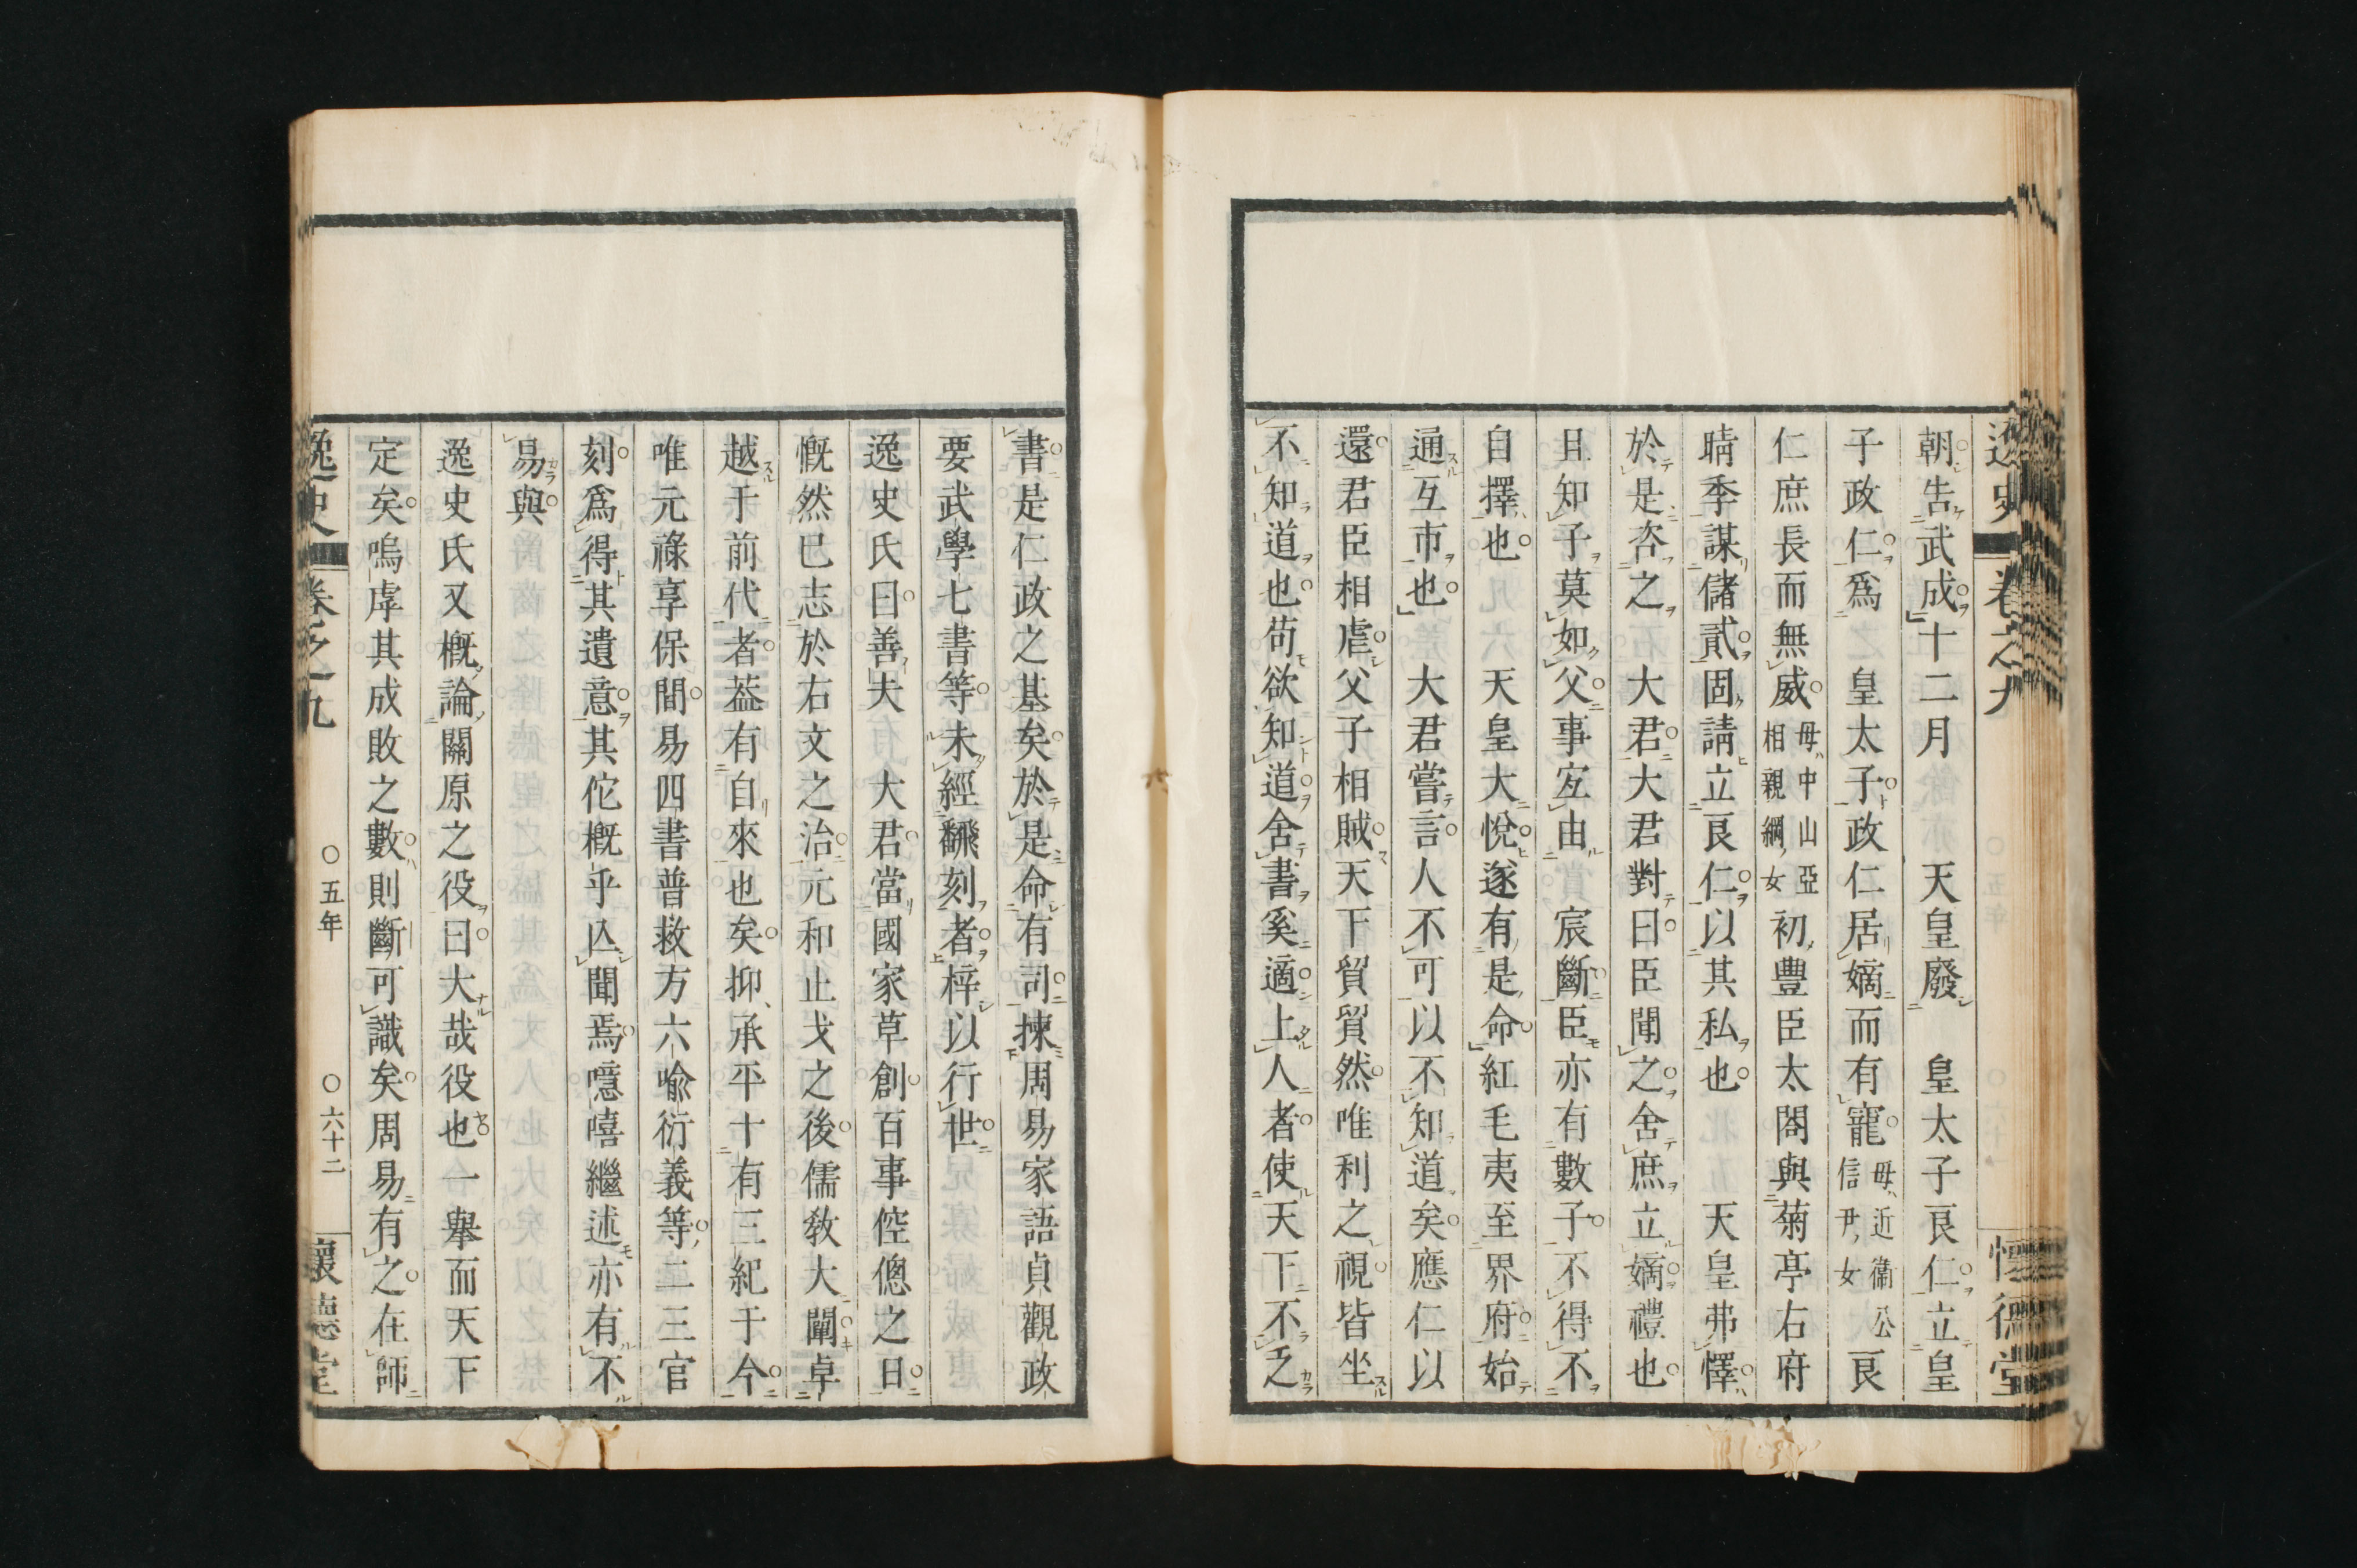 逸史 卷之九 懷德堂
朝告武成十二月　　天皇廢　皇太子良仁立皇
子政仁爲　皇太子政仁居嫡而有寵母近衞公信尹女良
仁庶長而無威母中山亞相親綱女初豐臣太閤與菊亭右府
晴季謀儲貳固請立良仁以其私也　　天皇弗懌
於是咨之　大君大君對曰臣聞之舍庶立嫡禮也
且知子莫如父事宜由　宸斷臣亦有數子不得不
自擇也　　天皇大悅遂有是命紅毛夷至界府始
通互市也　大君嘗言人不可以不知道矣應仁以
還君臣相虐父子相賊天下貿貿然唯利之視皆坐
不知道也苟欲知道舍書奚適上人者使天下不乏
書是仁政之基矣於是命有司揀周易家語貞觀政
要武學七書等未經翻刻者梓以行世
逸史氏曰善夫　大君當國家草創百事倥傯之日
慨然已志於右文之治元和止戈之後儒教大闡卓
越于前代者葢有自來也矣抑承平十有三紀于今
唯元祿享保間易四書普救方六喩衍義等二三官
刻爲得其遺意其佗槪乎亾聞焉噫嘻繼述亦有不
易與
逸史氏又概論關原之役曰大哉役也一擧而天下
定矣嗚虖其成敗之數則斷可識矣周易有之在師
逸史 卷之九 〇五年 〇六十二 懷德堂